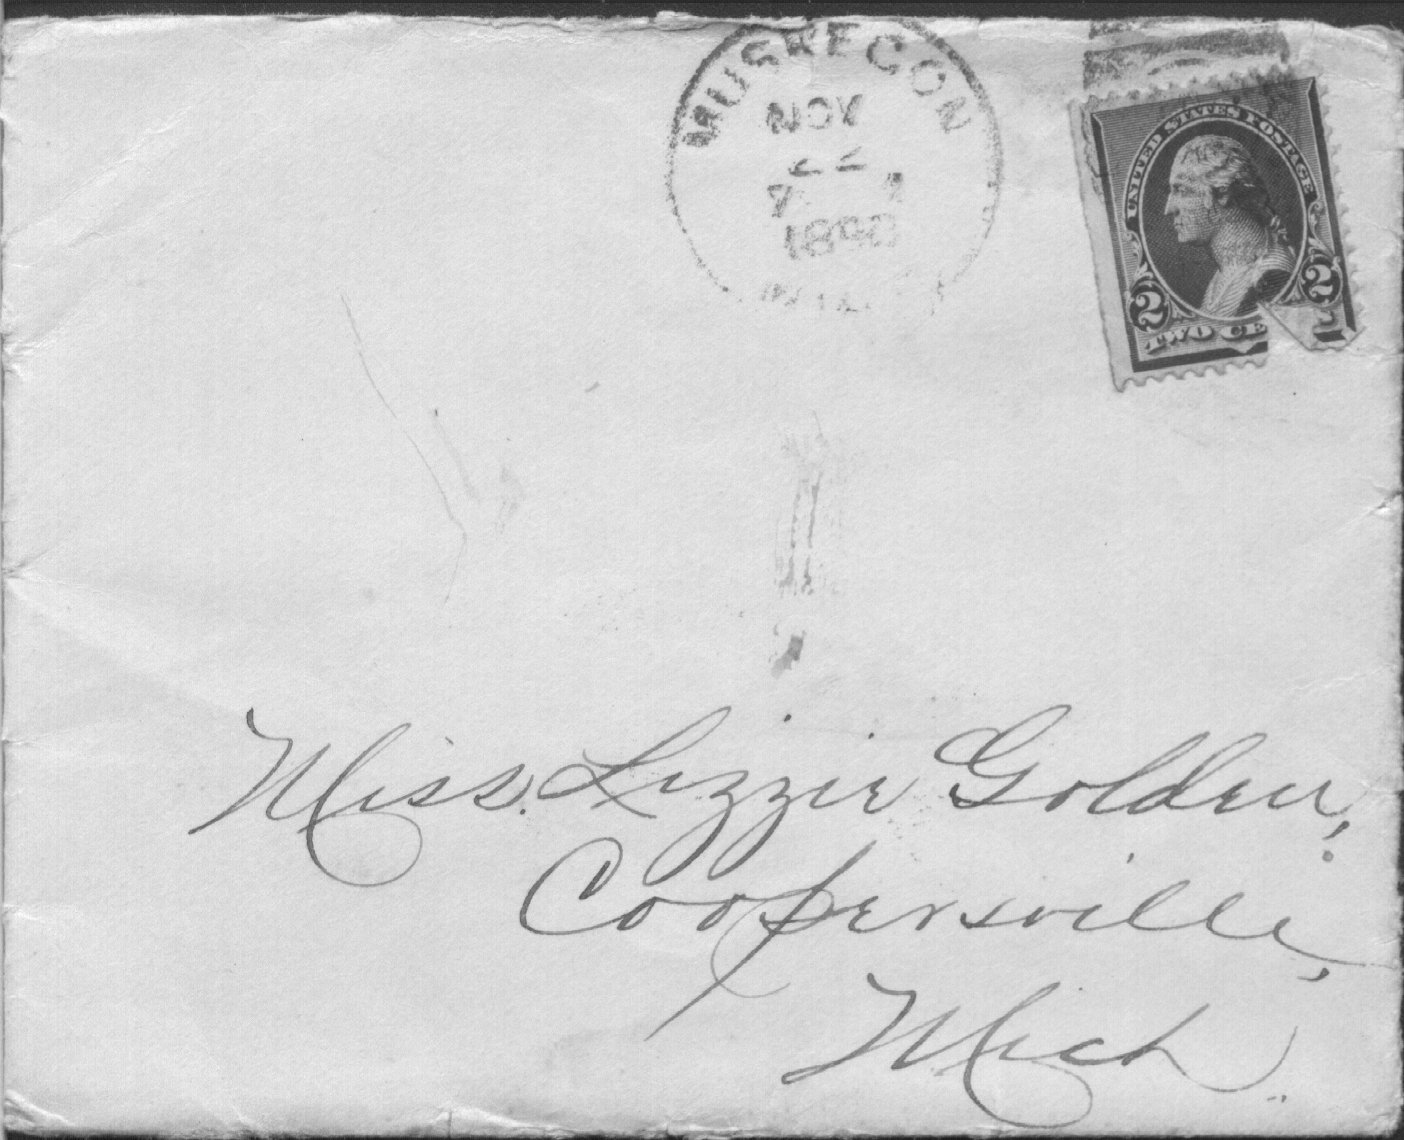 MUSKEGON
NOV
22
1890
UNITED STATES POSTAGE
2 2
TWO CE
Miss. Lizzie Golden,
Coopersville,
Mich.